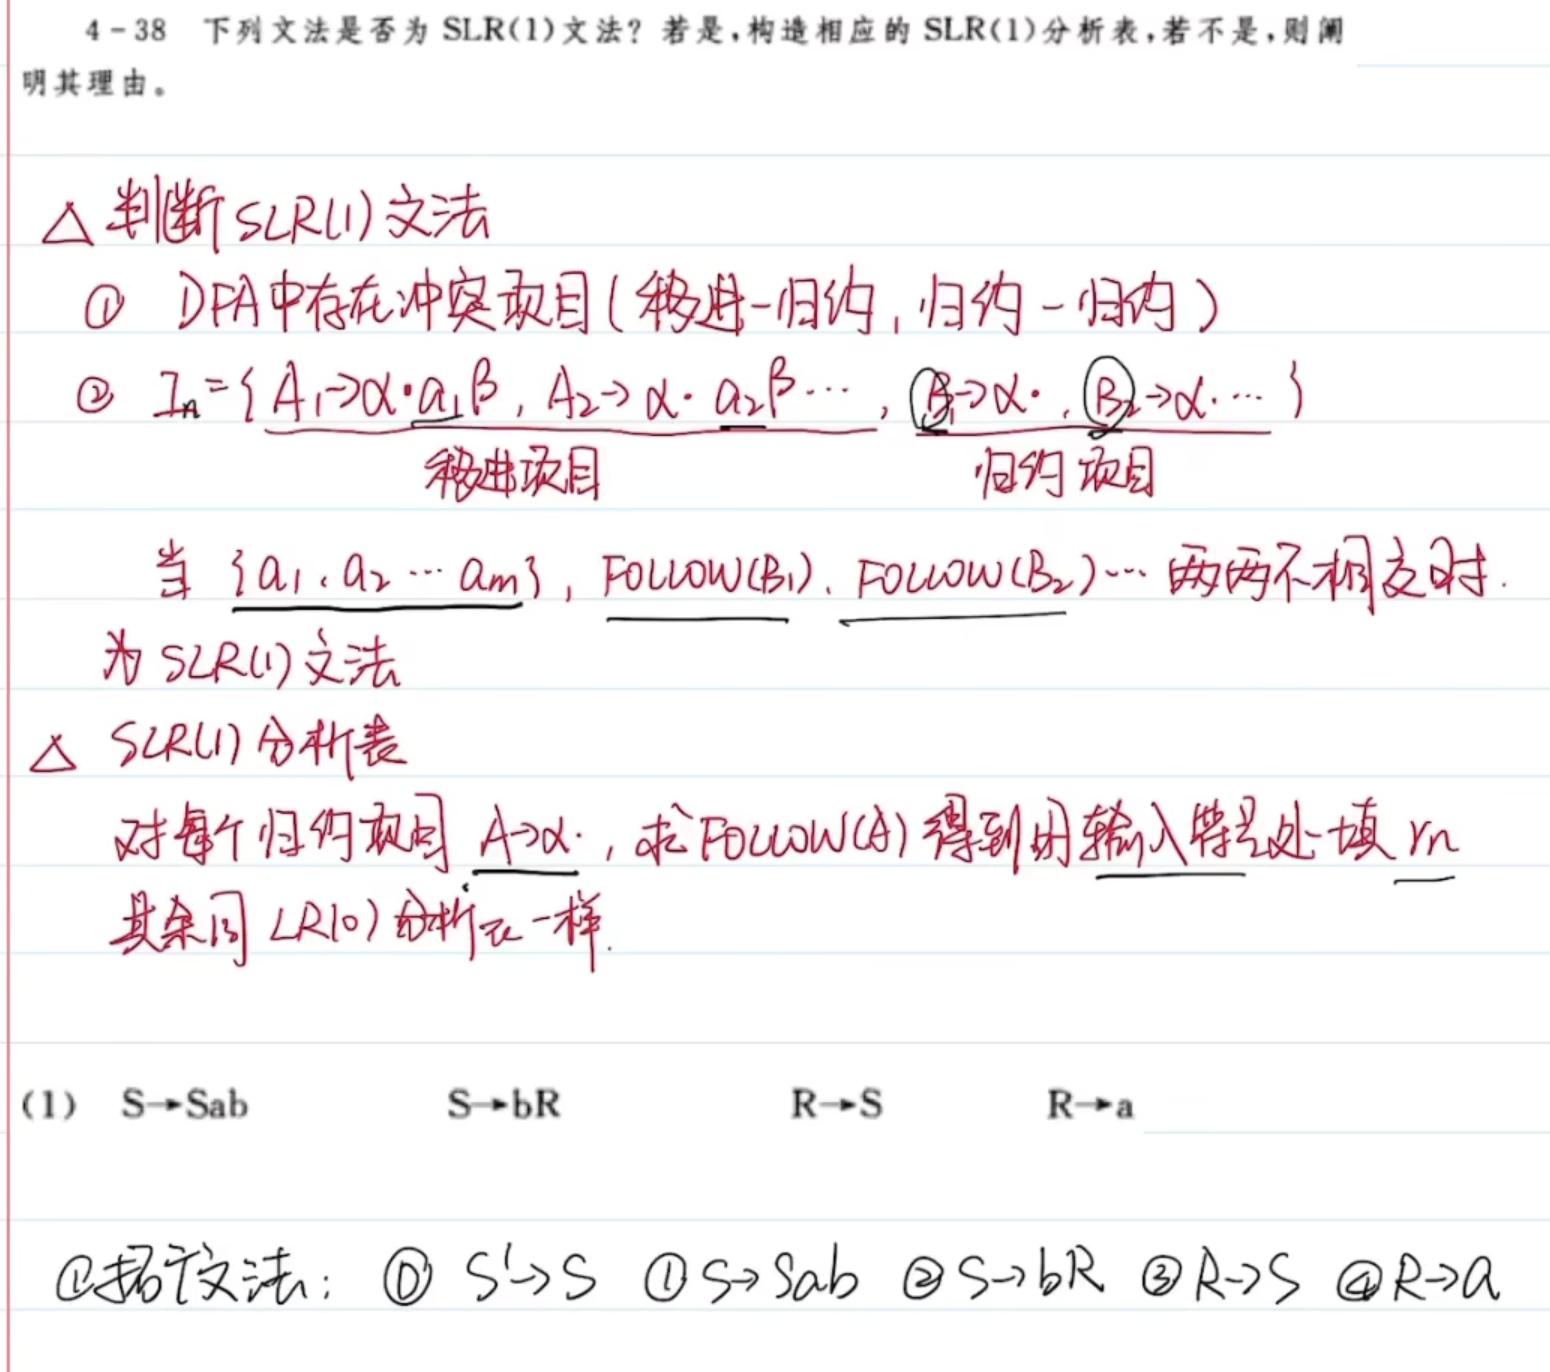 4-38 下列文法是否为 SLR(1)文法？若是,构造相应的 SLR(1)分析表,若不是,则阐
明其理由。
△ 判断SLR(1)文法
① DFA中存在冲突项目(移进-归约,归约-归约)
② In={A₁→α·a₁β, A₂→α·a₂β…, B₁→α·, B₂→α·…}
移进项目 归约项目
当 {a₁,a₂…am}, FOLLOW(B₁), FOLLOW(B₂)… 两两不相交时.
为SLR(1)文法
△ SLR(1)分析表
对每个归约项目 A→α·, 求FOLLOW(A)得到的输入符号处填 rn
其余同 LR(0)分析表一样.
(1) S→Sab S→bR R→S R→a
①拓广文法: ⓪ S'→S ① S→Sab ② S→bR ③ R→S ④ R→a